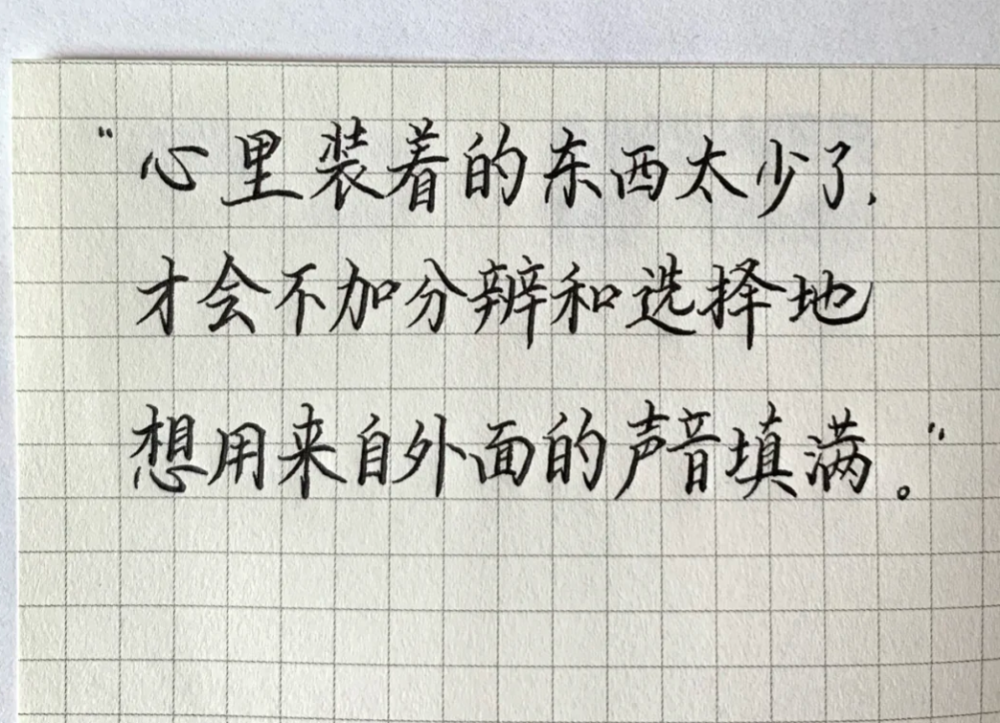 “心里装着的东西太少了,
才会不加分辨和选择地
想用来自外面的声音填满。”